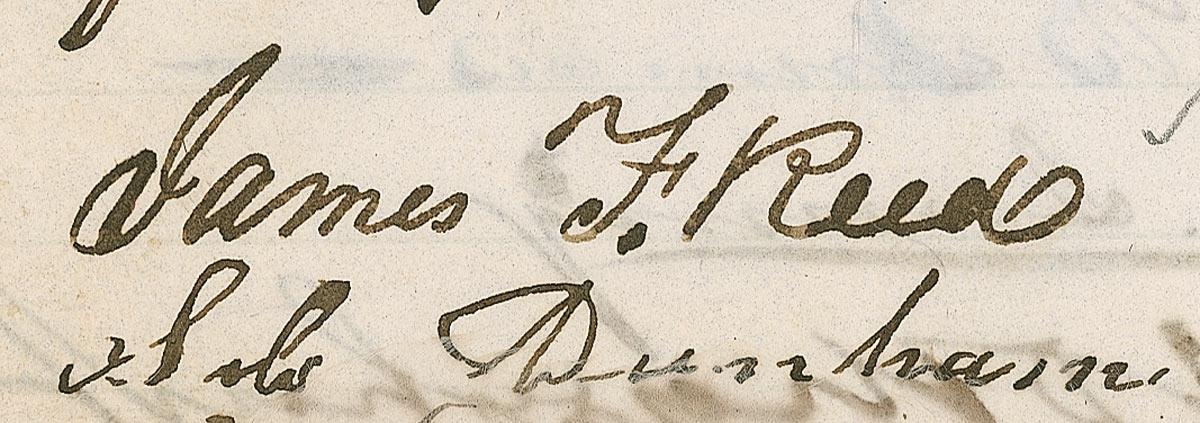 James F. Reed
Dunham